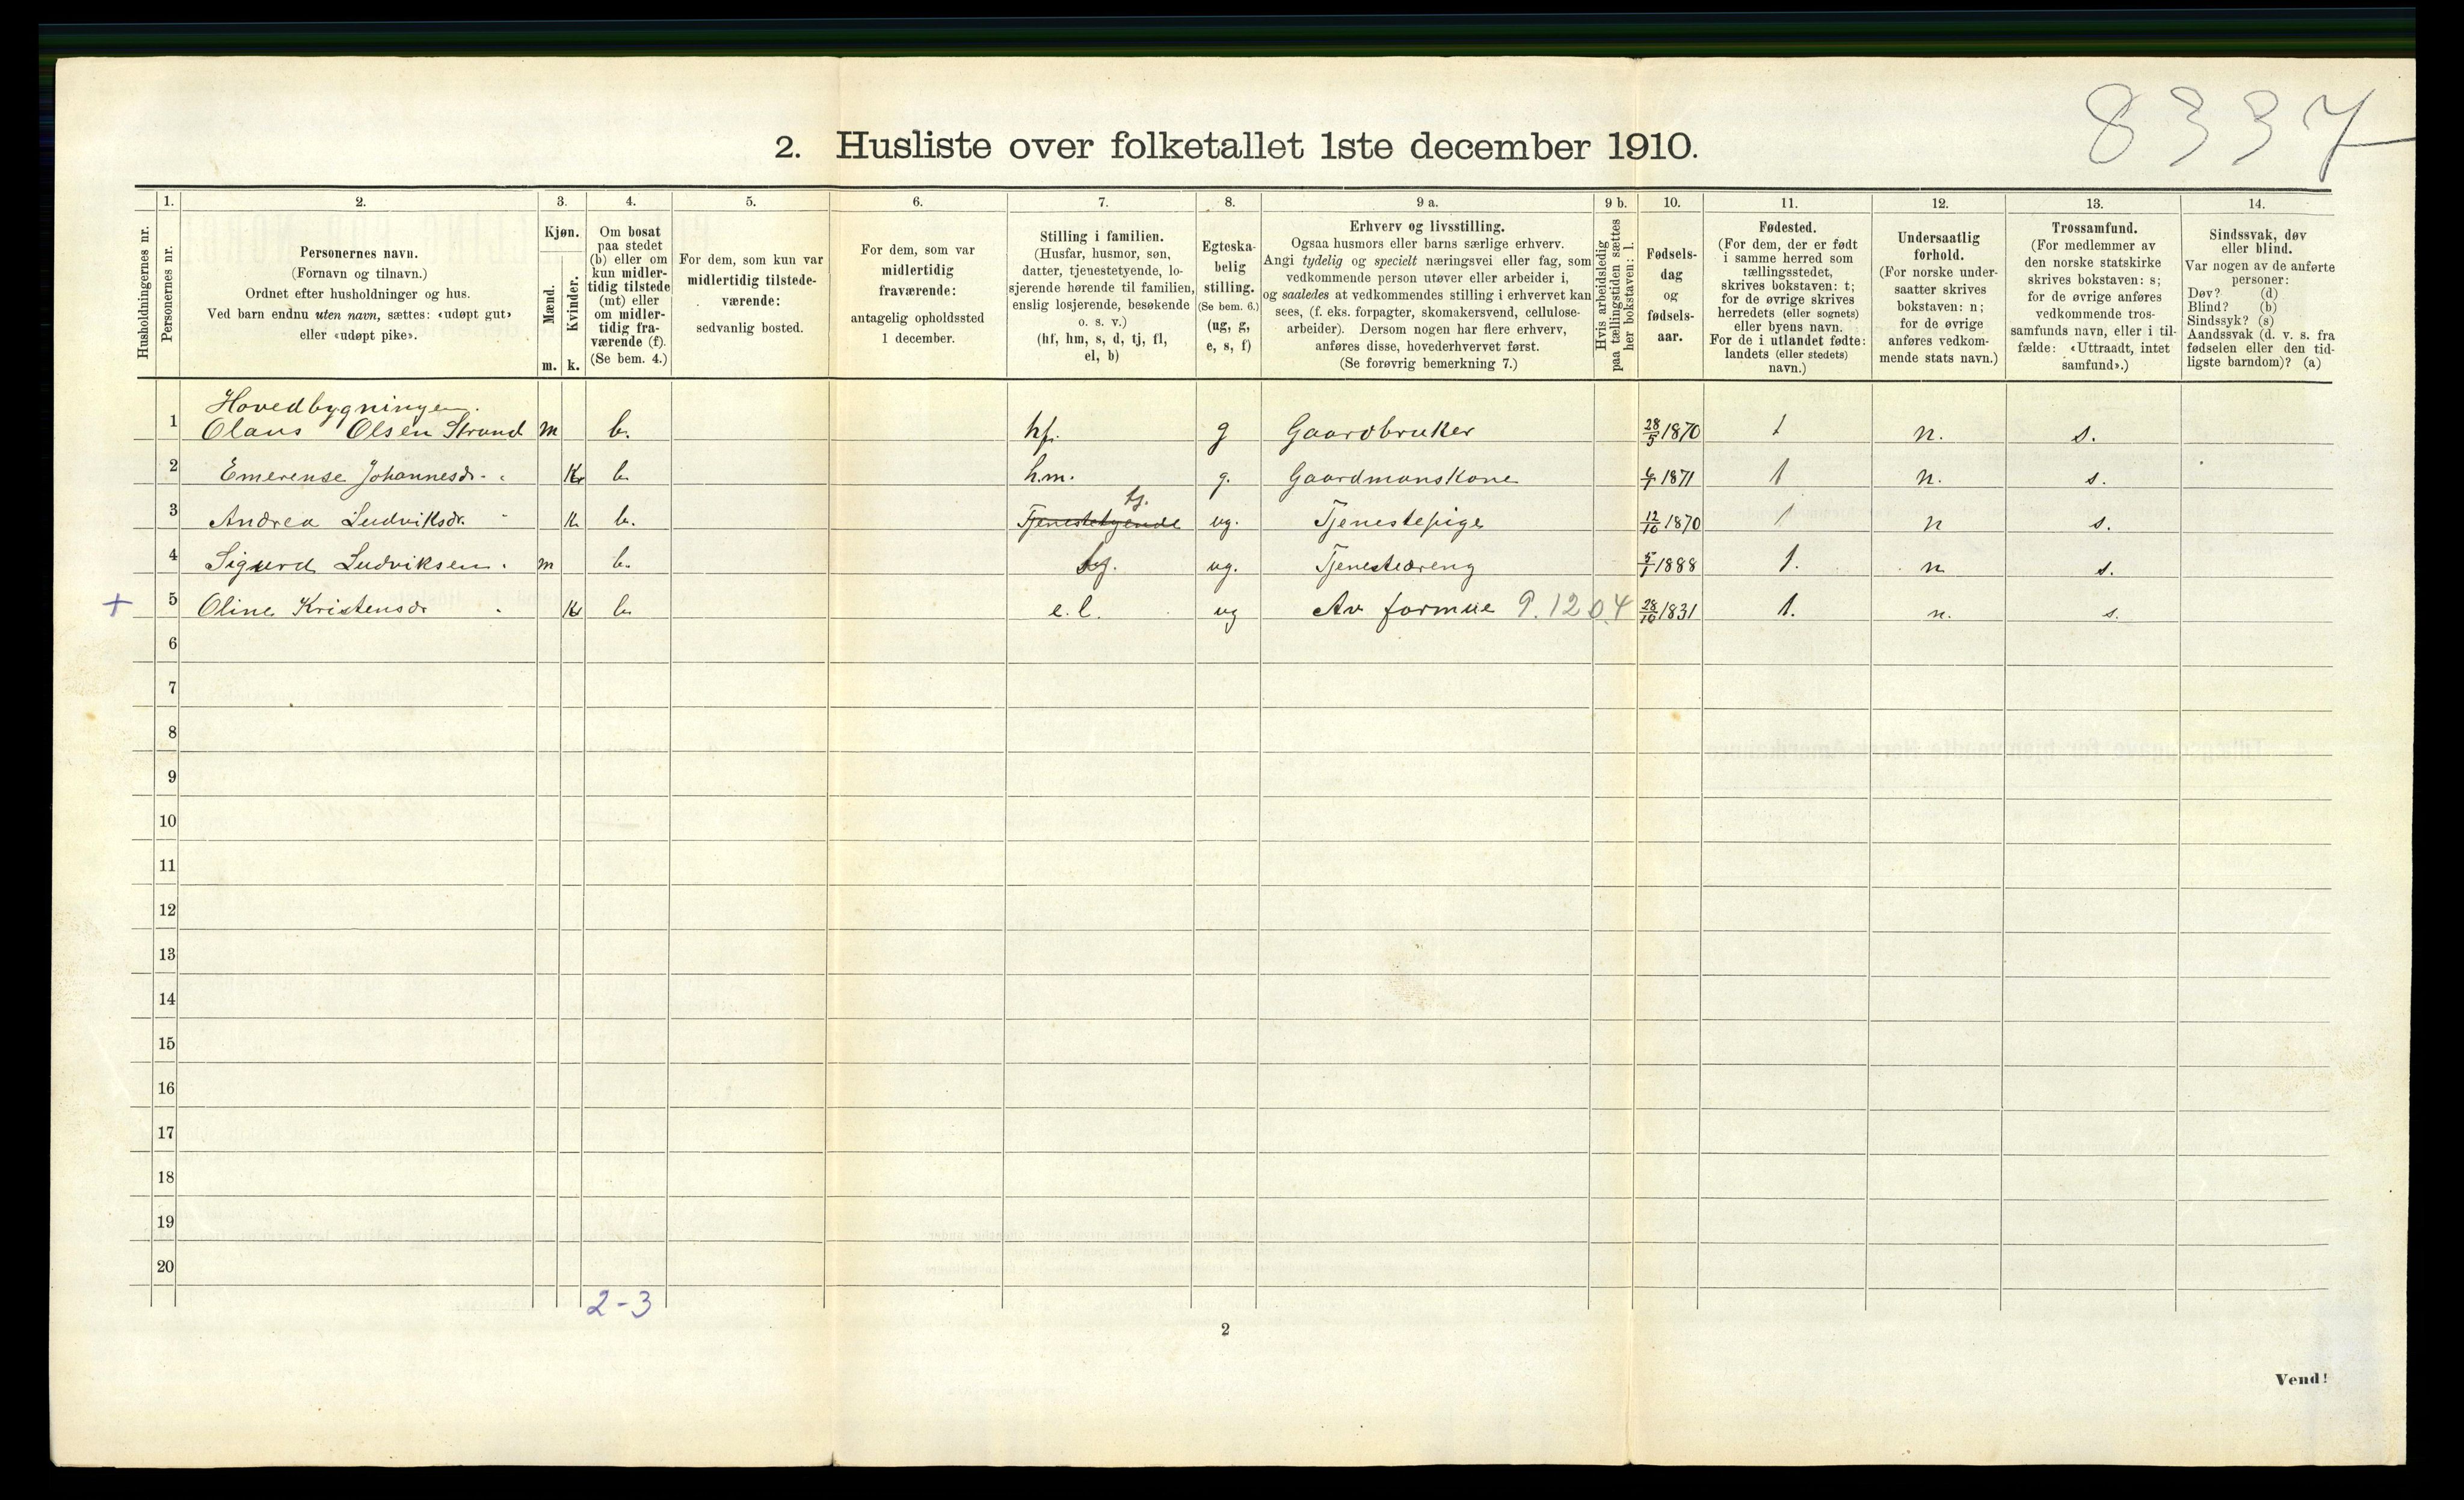 8337
2. Husliste over folketallet 1ste december 1910.
Husholdningernes nr.
1. Personernes nr.
2. Personernes navn.
(Fornavn og tilnavn.)
Ordnet efter husholdninger og hus.
Ved barn endnu uten navn, sættes: «udøpt gut»
eller «udøpt pike».
3. Kjøn.
Mænd. m.
Kvinder. k.
4. Om bosat
paa stedet
(b) eller om
kun midler-
tidig tilstede
(mt) eller
om midler-
tidig fra-
værende (f).
(Se bem. 4.)
5. For dem, som kun var
midlertidig tilstede-
værende:
sedvanlig bosted.
6. For dem, som var
midlertidig
fraværende:
antagelig opholdssted
1 december.
7. Stilling i familien.
(Husfar, husmor, søn,
datter, tjenestetyende, lo-
sjerende hørende til familien,
enslig losjerende, besøkende
o. s. v.)
(hf, hm, s, d, tj, fl,
el, b)
8. Egteska-
belig
stilling.
(Se bem. 6.)
(ug, g,
e, s, f)
9 a. Erhverv og livsstilling.
Ogsaa husmors eller barns særlige erhverv.
Angi tydelig og specielt næringsvei eller fag, som
vedkommende person utøver eller arbeider i,
og saaledes at vedkommendes stilling i erhvervet kan
sees, (f. eks. forpagter, skomakersvend, cellulose-
arbeider). Dersom nogen har flere erhverv,
anføres disse, hovederhvervet først.
(Se forøvrig bemerkning 7.)
9 b. Hvis arbeidsledig
paa tællingstiden sættes
her bokstaven: l.
10. Fødsels-
dag
og
fødsels-
aar.
11. Fødested.
(For dem, der er født
i samme herred som
tællingsstedet,
skrives bokstaven: t;
for de øvrige skrives
herredets (eller sognets)
eller byens navn.
For de i utlandet fødte:
landets (eller stedets)
navn.)
12. Undersaatlig
forhold.
(For norske under-
saatter skrives
bokstaven: n;
for de øvrige
anføres vedkom-
mende stats navn.)
13. Trossamfund.
(For medlemmer av
den norske statskirke
skrives bokstaven: s;
for de øvrige anføres
vedkommende tros-
samfunds navn, eller i til-
fælde: «Uttraadt, intet
samfund».)
14. Sindssvak, døv
eller blind.
Var nogen av de anførte
personer:
Døv? (d)
Blind? (b)
Sindssyk? (s)
Aandssvak (d. v. s. fra
fødselen eller den tid-
ligste barndom)? (a)
Hovedbygningen.
1 Olaus Olsen Strand m b. hf. g Gaardbruker 28/5 1870 1 n. s.
2 Emerense Johannesdr. " k b h.m. g. Gaardmanskone 1871 1 n. s.
3 Andrea Ludviksdr. " k b. Tjenestetyende tj. ug. Tjenestepige 12/10 1870 1 n s.
4 Sigurd Ludviksen " m b. tj. ug. Tjenestedreng 5/1 1888 1. n s.
+ 5 Oline Kristensdr " k b e.l. ug Av formue 9.1204 28/10 1831 1. n. s.
6
7
8
9
10
11
12
13
14
15
16
17
18
19
20
2-3
2
Vend!